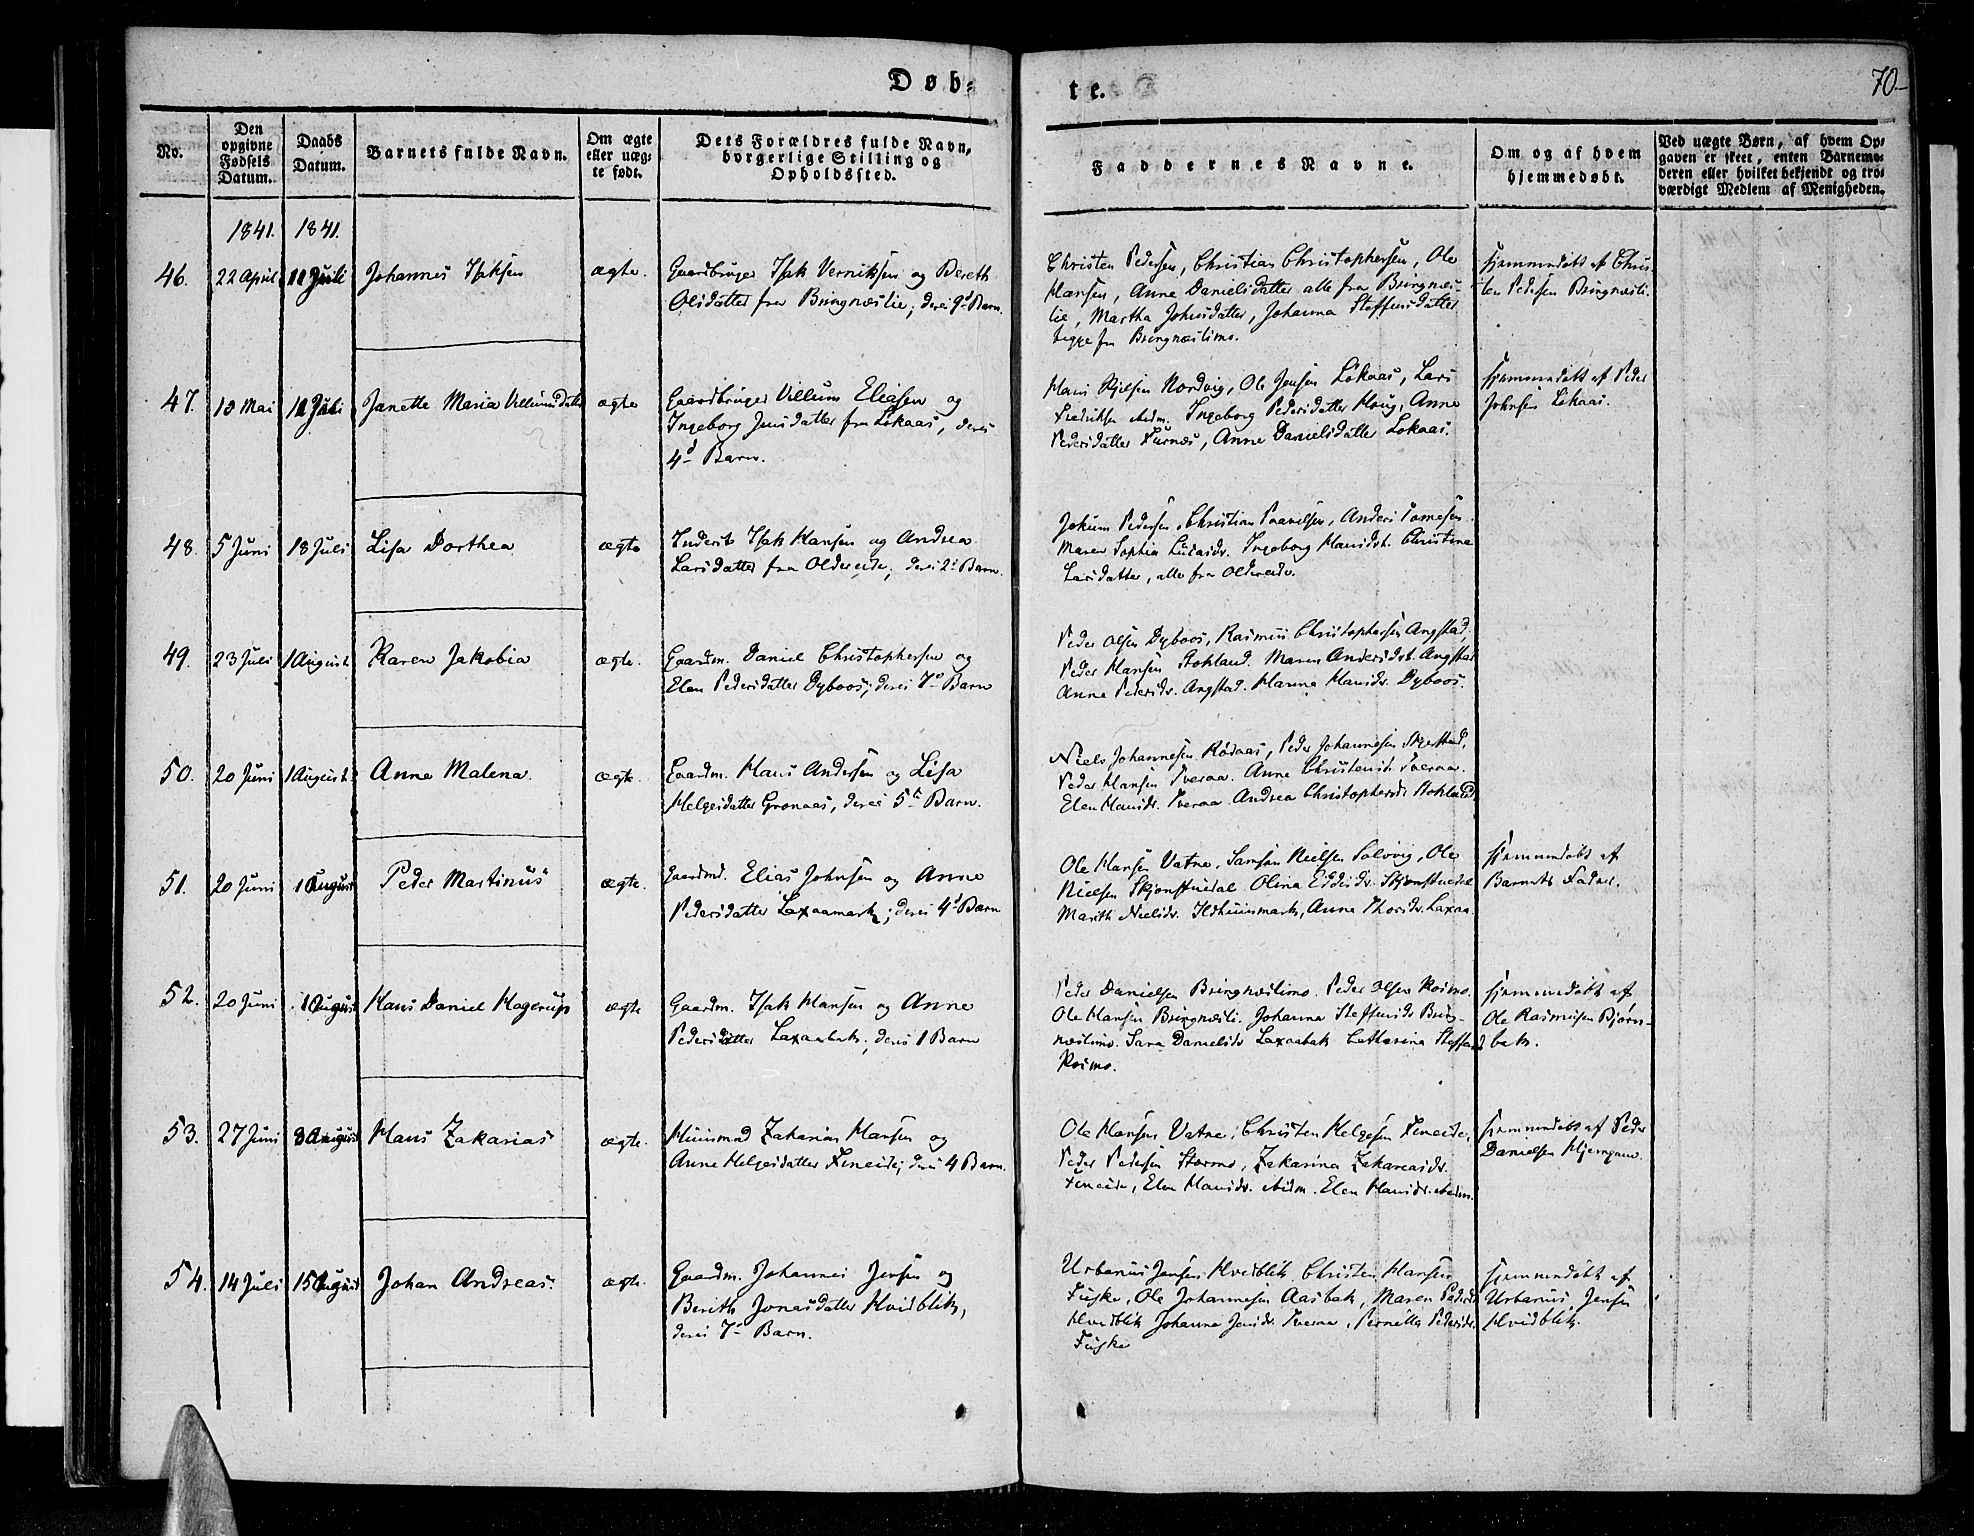 Døb-
te.
70.
No.
Den opgivne Fødsels Datum.
Daabs Datum.
Barnets fulde Navn.
Om ægte eller uægte født.
Dets Forældres fulde Navn, borgerlige Stilling og Opholdssted.
Faddernes Navne.
Om og af hvem hjemmedøbt.
Ved uægte Børn, af hvem Opgaven er skeet, enten Barnemoderen eller hvilket bekjendt og troværdigt Medlem af Menigheden.
1841. 1841.
46. 22 April 11 Juli Johannes Isaksen ægte.
Gaardbruger Isak Verniksen og Bereth
Olsdatter fra Bringnæslie; deres 9d Barn.
Christen Pedersen, Christian Christophersen, Ole
Hansen, Anne Danielsdatter alle fra Bringnæs-
lie, Martha Johnsdatter, Johanna Steffensdatter
begge fra Bringnæslimo.
hjemmedøbt af Chris-
ten Pedersen Bringnæsli.
47. 13 Mai 11 Juli Janette Maria Villumsdatter ægte
Gaardbruger Villum Eliasen og
Ingeborg Jensdatter fra Løkaas, deres
4d Barn.
Hans Nordvig, Ole Jensen Løkaas, Lars
Fredriksen ibidm. Ingeborg Pedersdatter Houg, Anne
Pedersdatter Furnæs, Anne Danielsdatter Løkaas.
hjemmedøbt af Peder
Johnsen Løkaas.
48. 5 Juni 18 Juli Lisa Dorthea ægte
Inderst Isak Hansen og Andrea
Larsdatter fra Oldereide; deres 2d Barn.
Jokum Pedersen, Christian Paavelsen, Anders Tomesen.
Maren Sophia Lucasdr. Ingeborg Hansdt. Christine
Larsdatter, alle fra Oldereide.
49. 23 Juli 1 August Karen Jakobia ægte.
Gaardm. Daniel Christophersen og
Elen Pedersdatter Dyboos; deres 7d Barn
Peder Olsen Dyboos, Rasmus Christophersen Angstad,
Peder Hansen Stokland. Maren Andersdt. Angstad
Anne Pedersdr. Angstad. Hanna Hansdr. Dyboos.
50. 20 Juni 1 August Anne Malena. ægte.
Gaardm. Hans Andersen og Lisa
Helgesdatter Grønaas, deres 5te Barn.
Niels Johannesen Rødaas, Peder Johannesen Skjerstad,
Peder Hansen Tveraa. Anne Christensdt. Tveraa.
Elen Hansdr. Tveraa. Andrea Christophersdr. Stokland.
51. 20 Juni 1 August Peder Martinus ægte.
Gaardmd. Elias Johnsen og Anne
Pedersdatter Laxaamark; deres 4d Barn
Ole Hansen Vatne. Samson Nielsen Solvig, Ole
Nielsen Skjønstuedal Olina Skjønstuedal
Marith Nielsdr. Anne Thorsdr. Laxaa.
hjemmedøbt af
Barnets Fader.
52. 20 Juni 1 August Hans Daniel Hagerup ægte
Gaardm. Isak Hansen og Anne
Pedersdatter Laxaabak; deres 1 Barn
Peder Danielsen Bringnæslimo. Peder Olsen Kosmo.
Ole Hansen Bringnæsli. Johanna Steffensdr Bring-
næslimo. Sara Danielsdr Laxaabak Catharina Steffensd
Kosmo.
hjemmedøbt af
Ole Rasmusen Bjørn-
bak.
53. 27 Juni 8 August Hans Zakarias ægte.
Huusmnd Zakarias Hansen og
Anne Helgesdatter Feneide; deres 4 Barn.
Ole Hansen Vatne, Christen Helgesen Feneide,
Peder Pedersen Stormo, Zakarina Zakariasdr.
Feneide, Elen Hansdr. ibidm. Elen Hansdr. ibidm.
hjemmedøbt af Peder
Danielsen
54. 14 Juli 15 August Johan Andreas. ægte.
Gaardm. Johannes Jensen og
Berith Jonasdatter Hvidblik,
deres 7d Barn.
Urbanus Jensen Hvidblik. Christen Hansen
Fuske, Ole Johannesen Aasbak, Maren Pedersdr
Hvidblik Johanna Jensdr. Tveraa, Pernella Pedersdr.
Fuske
hjemmedøbt af
Urbanus Jensen
Hvidblik.